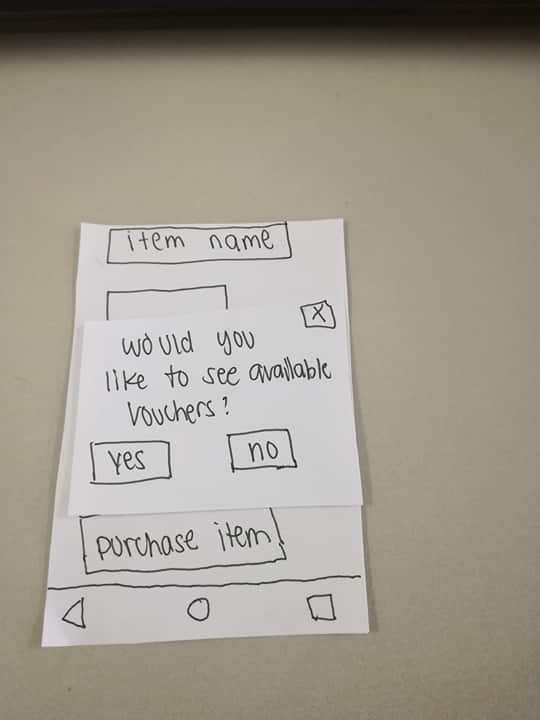 item name
X
would you
like to see available
vouchers?
yes
no
purchase item